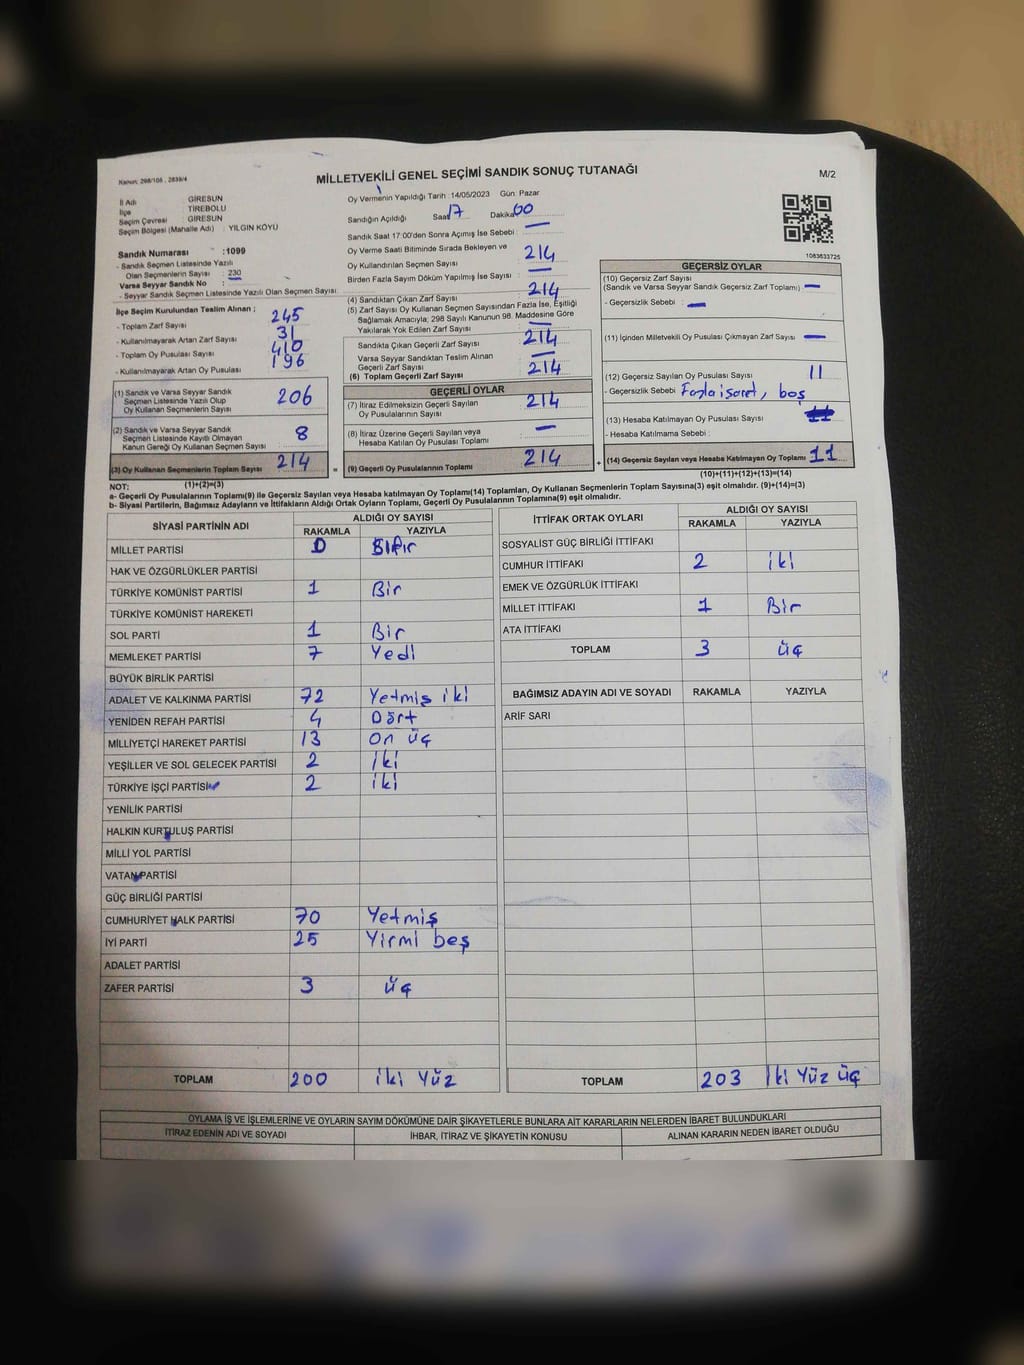 Kanun: 298/105 , 2839/4
MİLLETVEKİLİ GENEL SEÇİMİ SANDIK SONUÇ TUTANAĞI
M/2
İl Adı : GİRESUN
İlçe : TİREBOLU
Seçim Çevresi : GİRESUN
Seçim Bölgesi (Mahalle Adı) : YILGIN KÖYÜ
Sandık Numarası : 1099
- Sandık Seçmen Listesinde Yazılı
Olan Seçmenlerin Sayısı : 230
Varsa Seyyar Sandık No :
- Seyyar Sandık Seçmen Listesinde Yazılı Olan Seçmen Sayısı
İlçe Seçim Kurulundan Teslim Alınan ;
- Toplam Zarf Sayısı 245
- Kullanılmayarak Artan Zarf Sayısı 31
- Toplam Oy Pusulası Sayısı 410
- Kullanılmayarak Artan Oy Pusulası 196
(1) Sandık ve Varsa Seyyar Sandık
Seçmen Listesinde Yazılı Olup
Oy Kullanan Seçmenlerin Sayısı 206
(2) Sandık ve Varsa Seyyar Sandık
Seçmen Listesinde Kayıtlı Olmayan
Kanun Gereği Oy Kullanan Seçmen Sayısı 8
(3) Oy Kullanan Seçmenlerin Toplam Sayısı 214
(1)+(2)=(3)
Oy Vermenin Yapıldığı Tarih : 14/05/2023 Gün: Pazar
Sandığın Açıldığı Saat 17 Dakika 00
Sandık Saat 17:00'den Sonra Açılmış İse Sebebi : —
Oy Verme Saati Bitiminde Sırada Bekleyen ve
Oy Kullandırılan Seçmen Sayısı 214
Birden Fazla Sayım Döküm Yapılmış İse Sayısı : —
(4) Sandıktan Çıkan Zarf Sayısı 214
(5) Zarf Sayısı Oy Kullanan Seçmen Sayısından Fazla İse, Eşitliği
Sağlamak Amacıyla; 298 Sayılı Kanunun 98. Maddesine Göre
Yakılarak Yok Edilen Zarf Sayısı : —
Sandıkta Çıkan Geçerli Zarf Sayısı 214
Varsa Seyyar Sandıktan Teslim Alınan
Geçerli Zarf Sayısı —
(6) Toplam Geçerli Zarf Sayısı 214
GEÇERLİ OYLAR
(7) İtiraz Edilmeksizin Geçerli Sayılan
Oy Pusulalarının Sayısı 214
(8) İtiraz Üzerine Geçerli Sayılan veya
Hesaba Katılan Oy Pusulası Toplamı —
= (9) Geçerli Oy Pusulalarının Toplamı 214
1083633725
GEÇERSİZ OYLAR
(10) Geçersiz Zarf Sayısı
(Sandık ve Varsa Seyyar Sandık Geçersiz Zarf Toplamı) —
- Geçersizlik Sebebi : —
(11) İçinden Milletvekili Oy Pusulası Çıkmayan Zarf Sayısı —
(12) Geçersiz Sayılan Oy Pusulası Sayısı 11
- Geçersizlik Sebebi : Fazla işaret, boş
(13) Hesaba Katılmayan Oy Pusulası Sayısı
- Hesaba Katılmama Sebebi :
+ (14) Geçersiz Sayılan veya Hesaba Katılmayan Oy Toplamı 11
(10)+(11)+(12)+(13)=(14)
NOT:
a- Geçerli Oy Pusulalarının Toplamı(9) ile Geçersiz Sayılan veya Hesaba katılmayan Oy Toplamı(14) Toplamları, Oy Kullanan Seçmenlerin Toplam Sayısına(3) eşit olmalıdır. (9)+(14)=(3)
b- Siyasi Partilerin, Bağımsız Adayların ve İttifakların Aldığı Ortak Oyların Toplamı, Geçerli Oy Pusulalarının Toplamına(9) eşit olmalıdır.
SİYASİ PARTİNİN ADI ALDIĞI OY SAYISI
RAKAMLA YAZIYLA
MİLLET PARTİSİ 0 Sıfır
HAK VE ÖZGÜRLÜKLER PARTİSİ
TÜRKİYE KOMÜNİST PARTİSİ 1 Bir
TÜRKİYE KOMÜNİST HAREKETİ
SOL PARTİ 1 Bir
MEMLEKET PARTİSİ 7 Yedi
BÜYÜK BİRLİK PARTİSİ
ADALET VE KALKINMA PARTİSİ 72 Yetmiş iki
YENİDEN REFAH PARTİSİ 4 Dört
MİLLİYETÇİ HAREKET PARTİSİ 13 On üç
YEŞİLLER VE SOL GELECEK PARTİSİ 2 İki
TÜRKİYE İŞÇİ PARTİSİ 2 İki
YENİLİK PARTİSİ
HALKIN KURTULUŞ PARTİSİ
MİLLİ YOL PARTİSİ
VATAN PARTİSİ
GÜÇ BİRLİĞİ PARTİSİ
CUMHURİYET HALK PARTİSİ 70 Yetmiş
İYİ PARTİ 25 Yirmi beş
ADALET PARTİSİ
ZAFER PARTİSİ 3 üç
TOPLAM 200 iki Yüz
İTTİFAK ORTAK OYLARI ALDIĞI OY SAYISI
RAKAMLA YAZIYLA
SOSYALİST GÜÇ BİRLİĞİ İTTİFAKI
CUMHUR İTTİFAKI 2 iki
EMEK VE ÖZGÜRLÜK İTTİFAKI
MİLLET İTTİFAKI 1 Bir
ATA İTTİFAKI
TOPLAM 3 üç
BAĞIMSIZ ADAYIN ADI VE SOYADI RAKAMLA YAZIYLA
ARİF SARI
TOPLAM 203 İki Yüz üç
OYLAMA İŞ VE İŞLEMLERİNE VE OYLARIN SAYIM DÖKÜMÜNE DAİR ŞİKAYETLERLE BUNLARA AİT KARARLARIN NELERDEN İBARET BULUNDUKLARI
İTİRAZ EDENİN ADI VE SOYADI İHBAR, İTİRAZ VE ŞİKAYETİN KONUSU ALINAN KARARIN NEDEN İBARET OLDUĞU